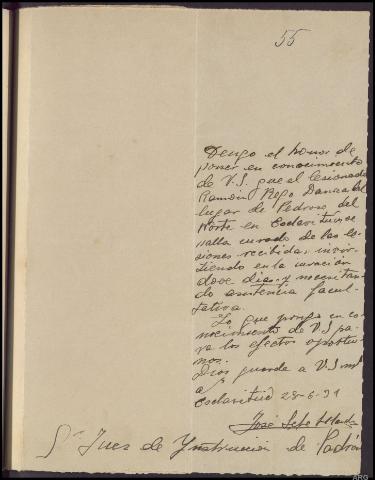 55
Tengo el honor de
poner en conocimiento
de V.S. que el lesionado
Ramón Rego Danza del
lugar de Pedroso del
Norte en Esclavitud, se
halla curado de las le-
siones recibidas, invir-
tiendo en la curación
doce dias y necesitan-
do asistencia facul-
tativa.
Lo que pongo en co-
nocimiento de V.S pa-
ra los efectos oportu-
nos.
Dios guarde a V.S m
a
Esclavitud 28-6-31
José Soto
Sr Juez de Ynstruccion de Padrón
ARG